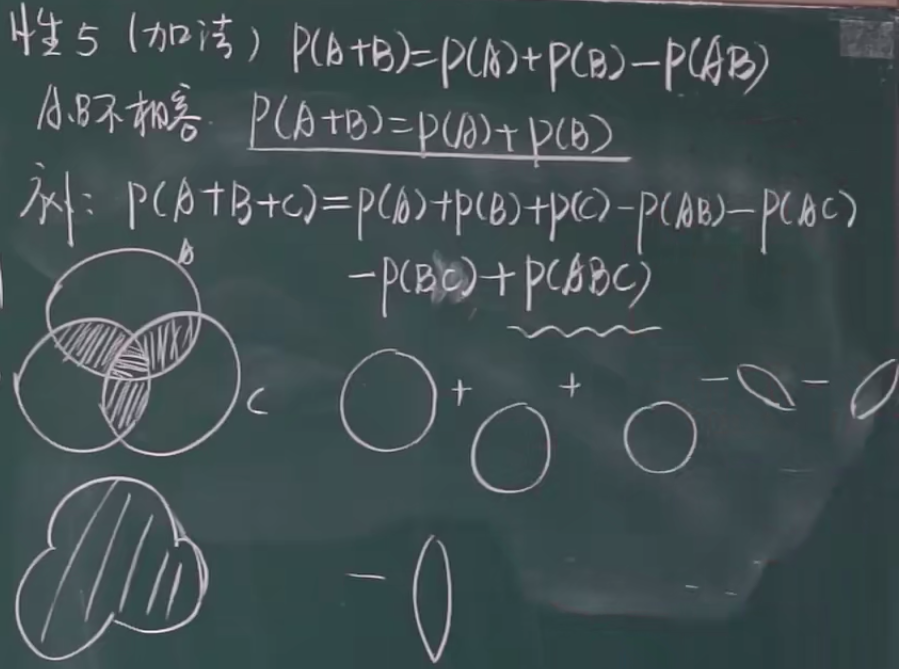 性5（加法）P(A+B)=P(A)+P(B)-P(AB)
A.B不相容. P(A+B)=P(A)+P(B)
例: P(A+B+C)=P(A)+P(B)+P(C)-P(AB)-P(AC)
-P(BC)+P(ABC)
A
C
+ + - -
-